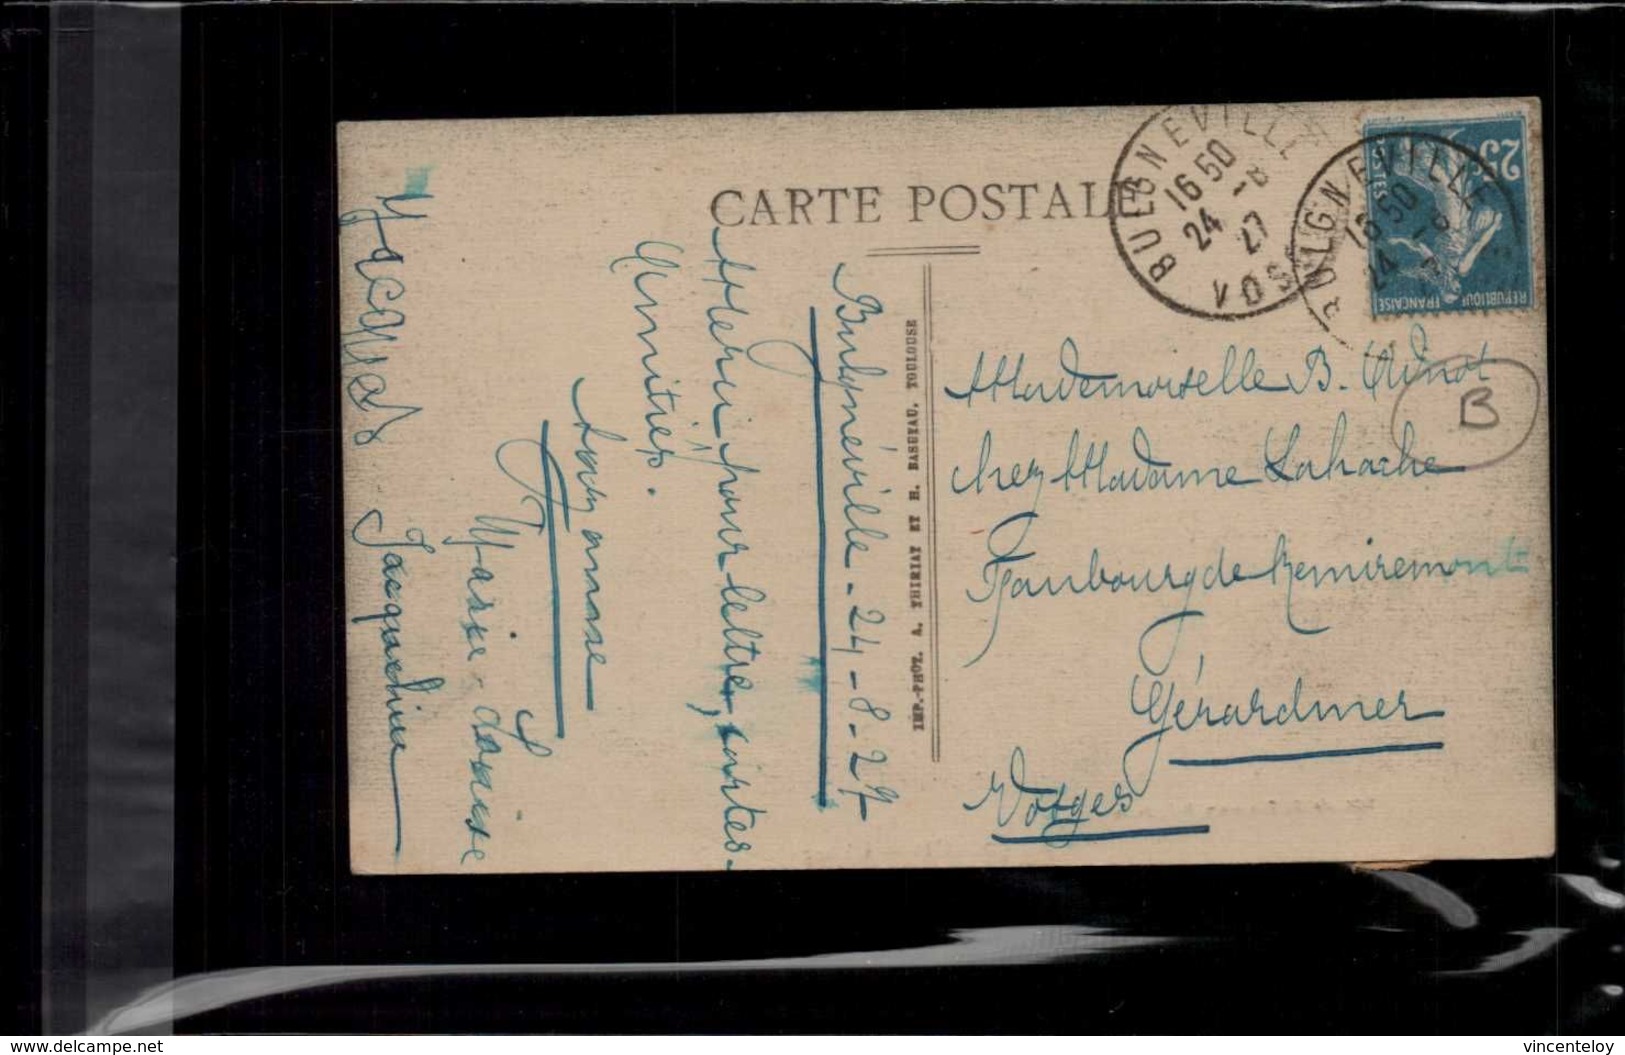 CARTE POSTALE
BULGNEVILLE
16 50
24 -8
27
VOSGES
BULGNEVILLE
16 50
24 -8
25c
POSTES
REPUBLIQUE
FRANCAISE
Bulgnéville - 24-8-27
Merci, pour lettre, cartes.
Amitiés.
Marie-Louise
Jacquelin
IMP.-PHOT. A. THIRIAT ET H. BASUYAU, TOULOUSE
Mademoiselle B. Adnot
B
chez Madame Lahache
Faubourg de Remiremont
Gérardmer
Vosges
www.delcampe.net
vincenteloy